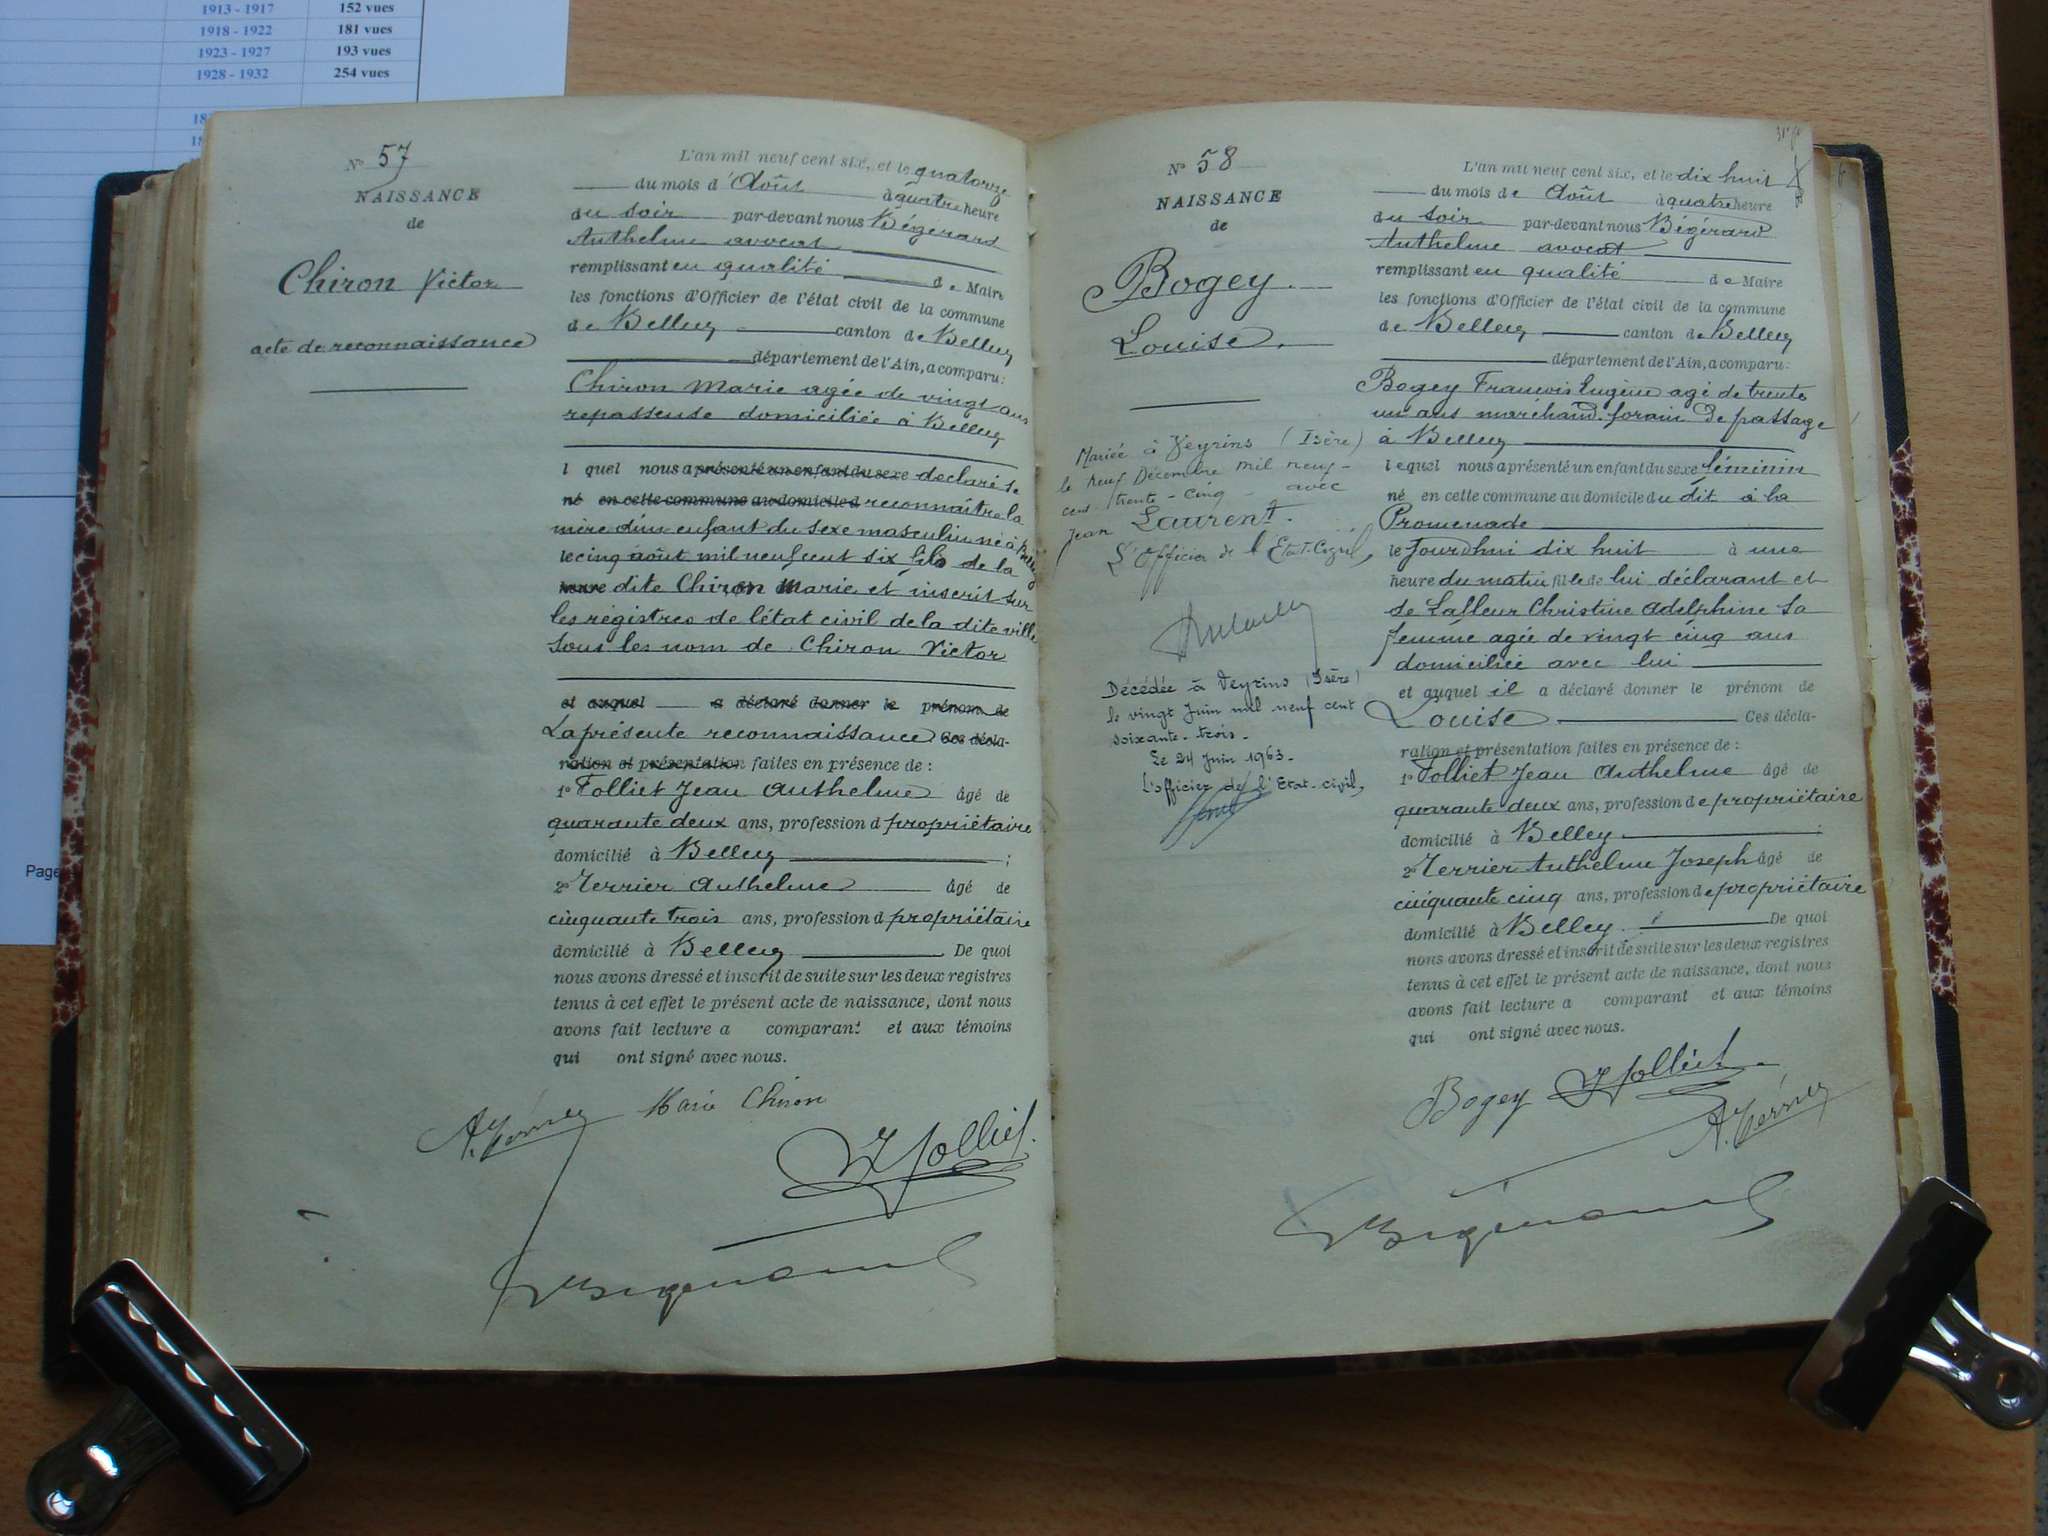 1913 - 1917 152 vues
1918 - 1922 181 vues
1923 - 1927 193 vues
1928 - 1932 254 vues
Page
N° 57
NAISSANCE
de
Chiron Victor
acte de reconnaissance
L'an mil neuf cent six, et le quatorze
du mois d'Août à quatre heure
du soir par-devant nous Bégérard
Anthelme avocat
remplissant en qualité de Maire
les fonctions d'Officier de l'état civil de la commune
de Belley canton de Belley
département de l'Ain, a comparu:
Chiron Marie agée de vingt ans
repasseuse domiciliée à Belley
l quel nous a présenté un enfant du sexe declaré se
né en cette commune au domicile d reconnaître la
mère d'un enfant du sexe masculin né à Belley
le cinq août mil neuf cent six fils de la
dite Chiron Marie et inscrit sur
les régistres de l'état civil de la dite ville
sous les nom de Chiron Victor
et auquel a déclaré donner le prénom de
La présente reconnaissance Ces décla-
ration et présentation faites en présence de :
1° Folliet Jean Anthelme âgé de
quarante deux ans, profession d propriétaire
domicilié à Belley ;
2° Terrier Anthelme âgé de
cinquante trois ans, profession d propriétaire
domicilié à Belley De quoi
nous avons dressé et inscrit de suite sur les deux registres
tenus à cet effet le présent acte de naissance, dont nous
avons fait lecture a comparant et aux témoins
qui ont signé avec nous.
Marie Chiron
Folliet
N° 58
NAISSANCE
de
Bogey
Louise
Mariée à Veyrins (Isère)
le neuf Décembre mil neuf-
cent-trente-cinq - avec
Jean Laurent.
L'Officier de l'Etat-Civil,
Décédée à Veyrins (Isère)
le vingt Juin mil neuf cent
soixante-trois-
Le 24 Juin 1963-
L'officier de l'Etat-civil,
L'an mil neuf cent six, et le dix huit
du mois de Août à quatre heure
du soir par-devant nous Bégérard
Anthelme avocat
remplissant en qualité de Maire
les fonctions d'Officier de l'état civil de la commune
de Belley canton de Belley
département de l'Ain, a comparu:
Bogey François Eugène agé de trente
un ans marchand forain de passage
à Belley
lequel nous a présenté un enfant du sexe féminin
né en cette commune au domicile du dit à la
Promenade
le jourdhui dix huit à une
heure du matin fille de lui déclarant et
de Lafleur Christine Adelphine sa
femme agée de vingt cinq ans
domiciliée avec lui
et auquel il a déclaré donner le prénom de
Louise Ces décla-
ration et présentation faites en présence de :
1° Folliet Jean Anthelme âgé de
quarante deux ans, profession de propriétaire
domicilié à Belley ;
2° Terrier Anthelme Joseph âgé de
cinquante cinq ans, profession de propriétaire
domicilié à Belley. De quoi
nous avons dressé et inscrit de suite sur les deux registres
tenus à cet effet le présent acte de naissance, dont nous
avons fait lecture a comparant et aux témoins
qui ont signé avec nous.
Bogey Folliet